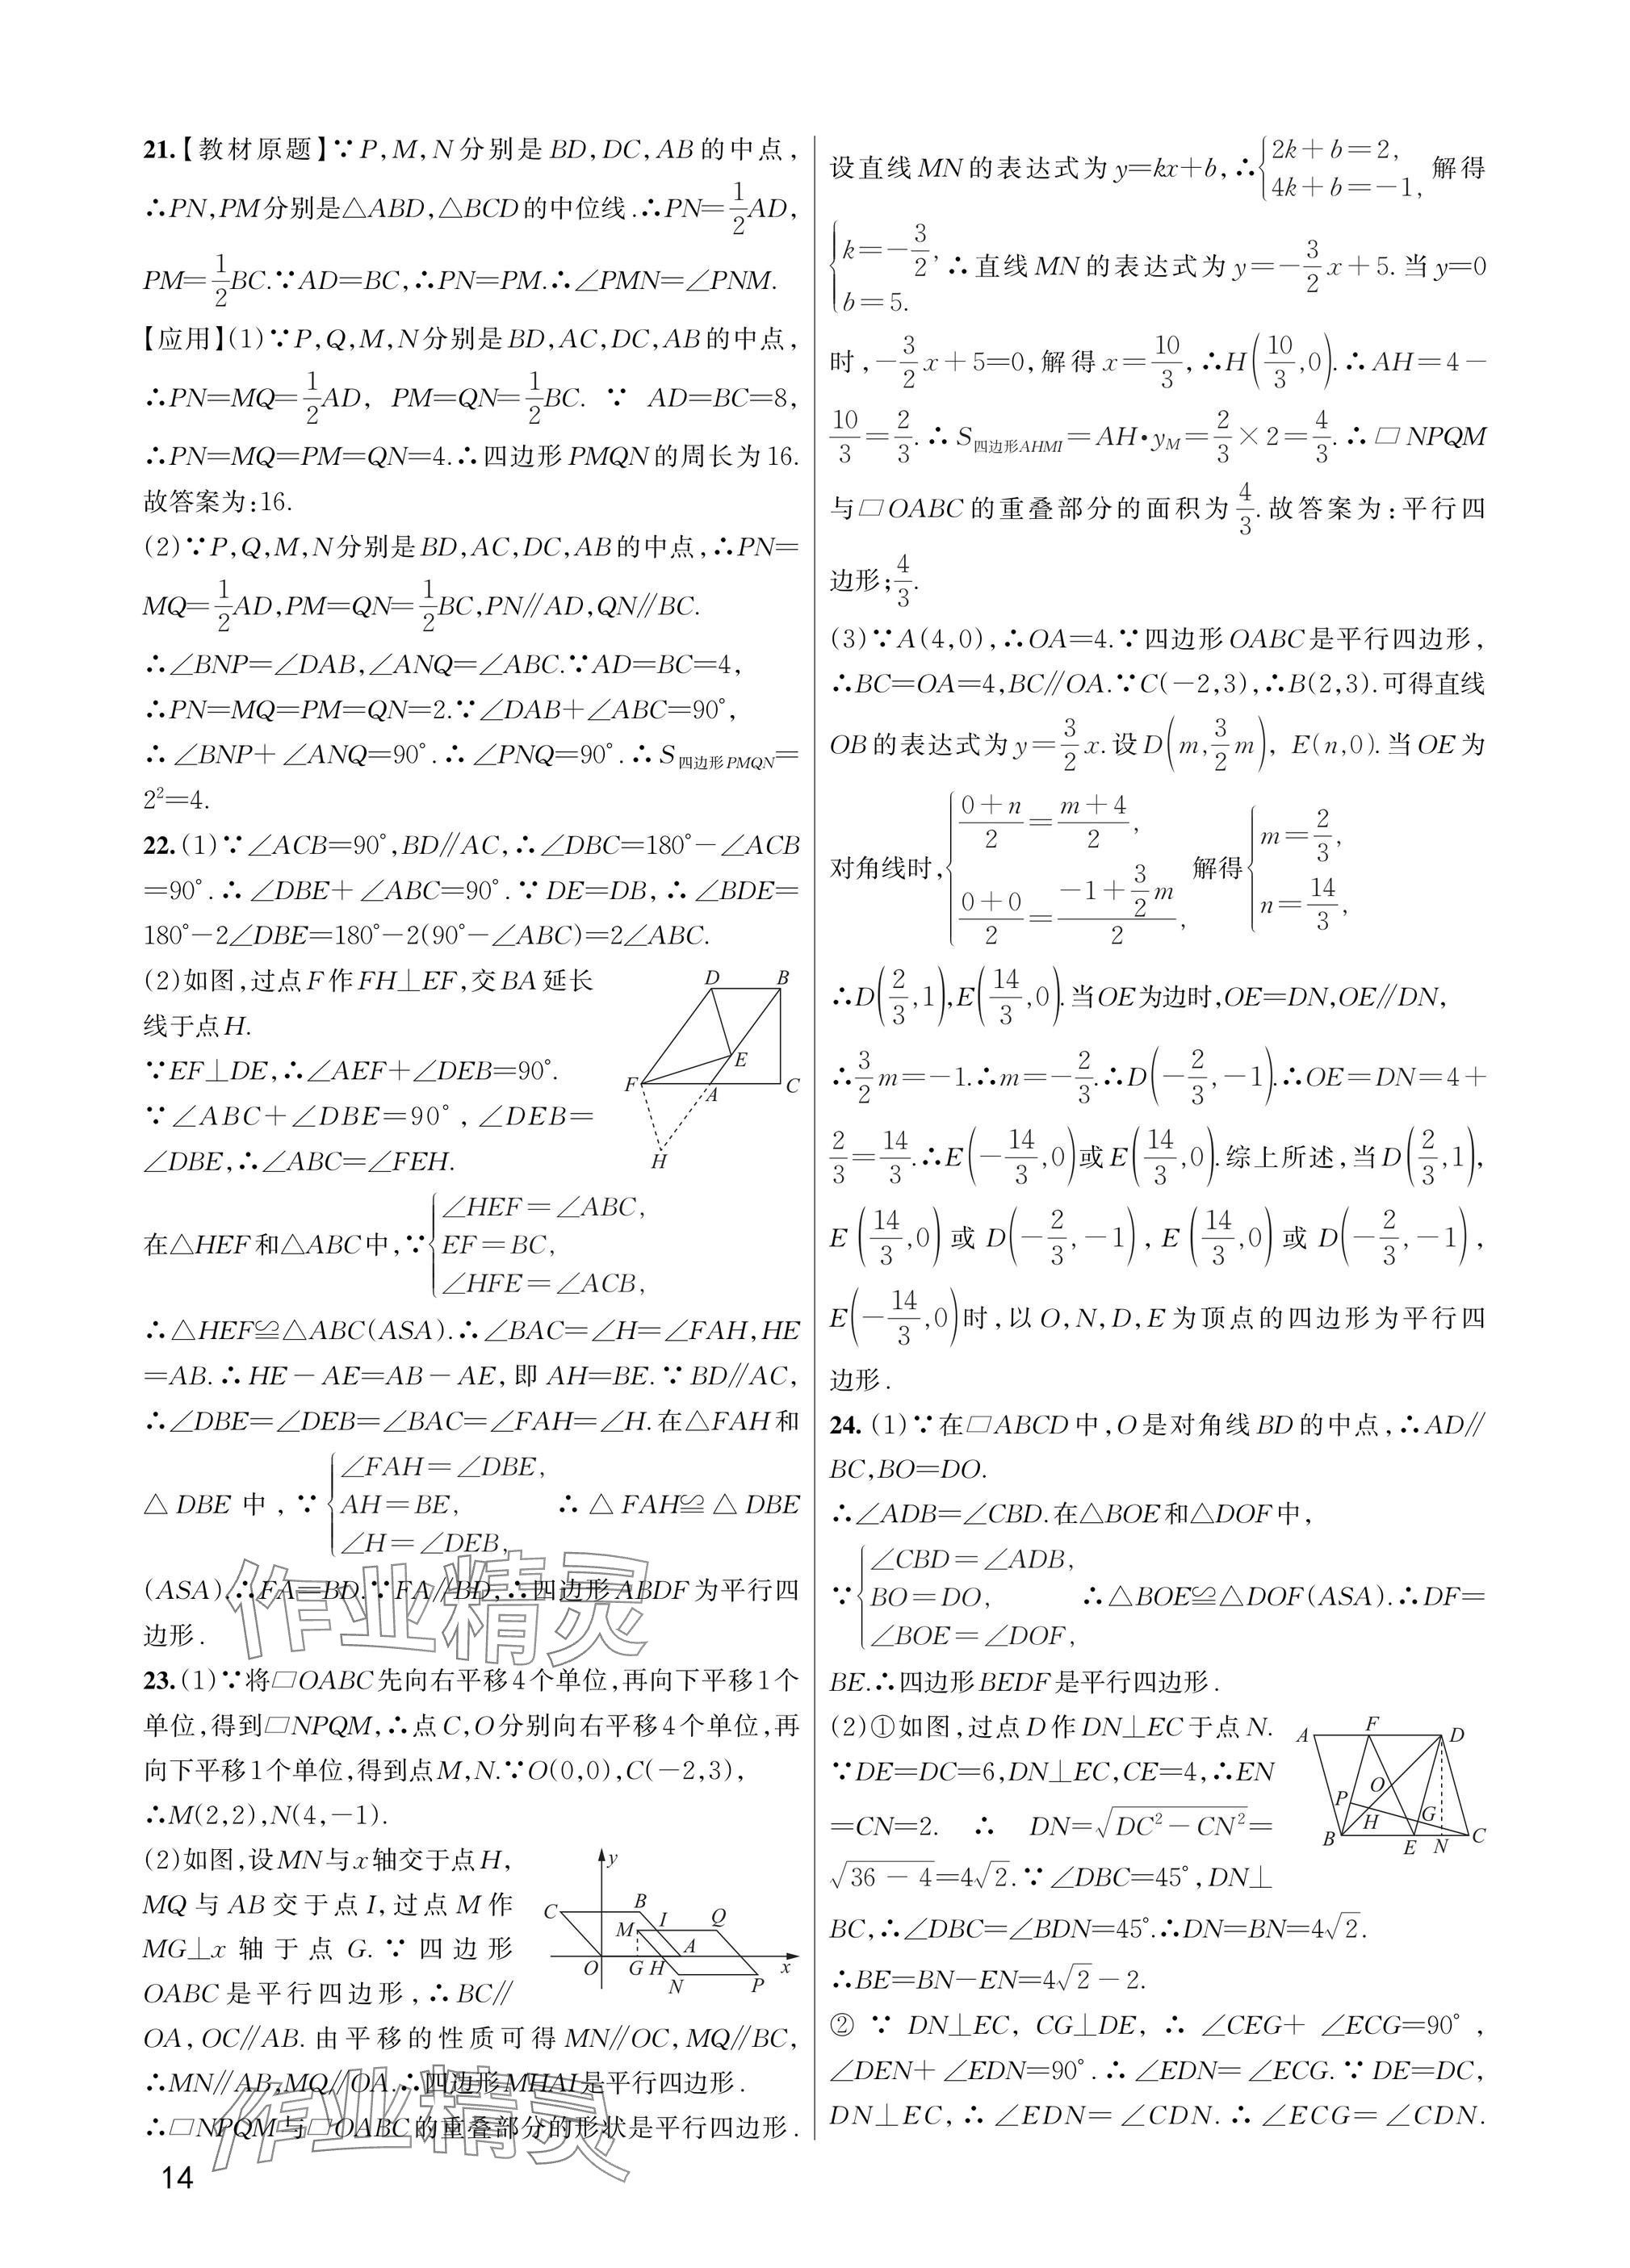 21.【教材原题】∵P,M,N分别是BD,DC,AB的中点,
∴PN,PM分别是△ABD,△BCD的中位线.∴PN=1/2AD,
PM=1/2BC.∵AD=BC,∴PN=PM.∴∠PMN=∠PNM.
【应用】(1)∵P,Q,M,N分别是BD,AC,DC,AB的中点,
∴PN=MQ=1/2AD, PM=QN=1/2BC. ∵ AD=BC=8,
∴PN=MQ=PM=QN=4.∴四边形PMQN的周长为16.
故答案为:16.
(2)∵P,Q,M,N分别是BD,AC,DC,AB的中点,∴PN=
MQ=1/2AD,PM=QN=1/2BC,PN∥AD,QN∥BC.
∴∠BNP=∠DAB,∠ANQ=∠ABC.∵AD=BC=4,
∴PN=MQ=PM=QN=2.∵∠DAB+∠ABC=90°,
∴∠BNP+∠ANQ=90°.∴∠PNQ=90°.∴S四边形PMQN=
2²=4.
22.(1)∵∠ACB=90°,BD∥AC,∴∠DBC=180°-∠ACB
=90°.∴∠DBE+∠ABC=90°.∵DE=DB,∴∠BDE=
180°-2∠DBE=180°-2(90°-∠ABC)=2∠ABC.
(2)如图,过点F作FH⊥EF,交BA延长
线于点H.
∵EF⊥DE,∴∠AEF+∠DEB=90°.
∵∠ABC+∠DBE=90°,∠DEB=
∠DBE,∴∠ABC=∠FEH.
D B
E
F A C
H
在△HEF和△ABC中,∵{∠HEF=∠ABC,
EF=BC,
∠HFE=∠ACB,
∴△HEF≌△ABC(ASA).∴∠BAC=∠H=∠FAH,HE
=AB.∴HE-AE=AB-AE,即AH=BE.∵BD∥AC,
∴∠DBE=∠DEB=∠BAC=∠FAH=∠H.在△FAH和
△DBE中,∵{∠FAH=∠DBE,
AH=BE,
∠H=∠DEB,
∴△FAH≌△DBE
(ASA).∴FA=BD.∵FA∥BD,∴四边形ABDF为平行四
边形.
23.(1)∵将▱OABC先向右平移4个单位,再向下平移1个
单位,得到▱NPQM,∴点C,O分别向右平移4个单位,再
向下平移1个单位,得到点M,N.∵O(0,0),C(-2,3),
∴M(2,2),N(4,-1).
(2)如图,设MN与x轴交于点H,
MQ与AB交于点I,过点M作
MG⊥x轴于点G.∵四边形
OABC是平行四边形,∴BC∥
y
C B
M I Q
A
O G H N P x
OA,OC∥AB.由平移的性质可得MN∥OC,MQ∥BC,
∴MN∥AB,MQ∥OA.∴四边形MHAI是平行四边形.
∴▱NPQM与▱OABC的重叠部分的形状是平行四边形.
作业精灵
作业精灵
14
设直线MN的表达式为y=kx+b,∴{2k+b=2,
4k+b=-1,
解得
{k=-3/2,
b=5.
∴直线MN的表达式为y=-3/2x+5.当y=0
时,-3/2x+5=0,解得x=10/3,∴H(10/3,0).∴AH=4-
10/3=2/3.∴S四边形AHMI=AH·yM=2/3×2=4/3.∴▱NPQM
与▱OABC的重叠部分的面积为4/3.故答案为:平行四
边形;4/3.
(3)∵A(4,0),∴OA=4.∵四边形OABC是平行四边形,
∴BC=OA=4,BC∥OA.∵C(-2,3),∴B(2,3).可得直线
OB的表达式为y=3/2x.设D(m,3/2m),E(n,0).当OE为
对角线时,{(0+n)/2=(m+4)/2,
(0+0)/2=(-1+3/2m)/2,
解得{m=2/3,
n=14/3,
∴D(2/3,1),E(14/3,0).当OE为边时,OE=DN,OE∥DN,
∴3/2m=-1.∴m=-2/3.∴D(-2/3,-1).∴OE=DN=4+
2/3=14/3.∴E(-14/3,0)或E(14/3,0).综上所述,当D(2/3,1),
E(14/3,0)或D(-2/3,-1),E(14/3,0)或D(-2/3,-1),
E(-14/3,0)时,以O,N,D,E为顶点的四边形为平行四
边形.
24.(1)∵在▱ABCD中,O是对角线BD的中点,∴AD∥
BC,BO=DO.
∴∠ADB=∠CBD.在△BOE和△DOF中,
∵{∠CBD=∠ADB,
BO=DO,
∠BOE=∠DOF,
∴△BOE≌△DOF(ASA).∴DF=
BE.∴四边形BEDF是平行四边形.
(2)①如图,过点D作DN⊥EC于点N.
∵DE=DC=6,DN⊥EC,CE=4,∴EN
=CN=2. ∴ DN=√(DC²-CN²)=
√(36-4)=4√2.∵∠DBC=45°,DN⊥
A F D
O
P G
H
B E N C
BC,∴∠DBC=∠BDN=45°.∴DN=BN=4√2.
∴BE=BN-EN=4√2-2.
②∵DN⊥EC,CG⊥DE,∴∠CEG+∠ECG=90°,
∠DEN+∠EDN=90°.∴∠EDN=∠ECG.∵DE=DC,
DN⊥EC,∴∠EDN=∠CDN.∴∠ECG=∠CDN.